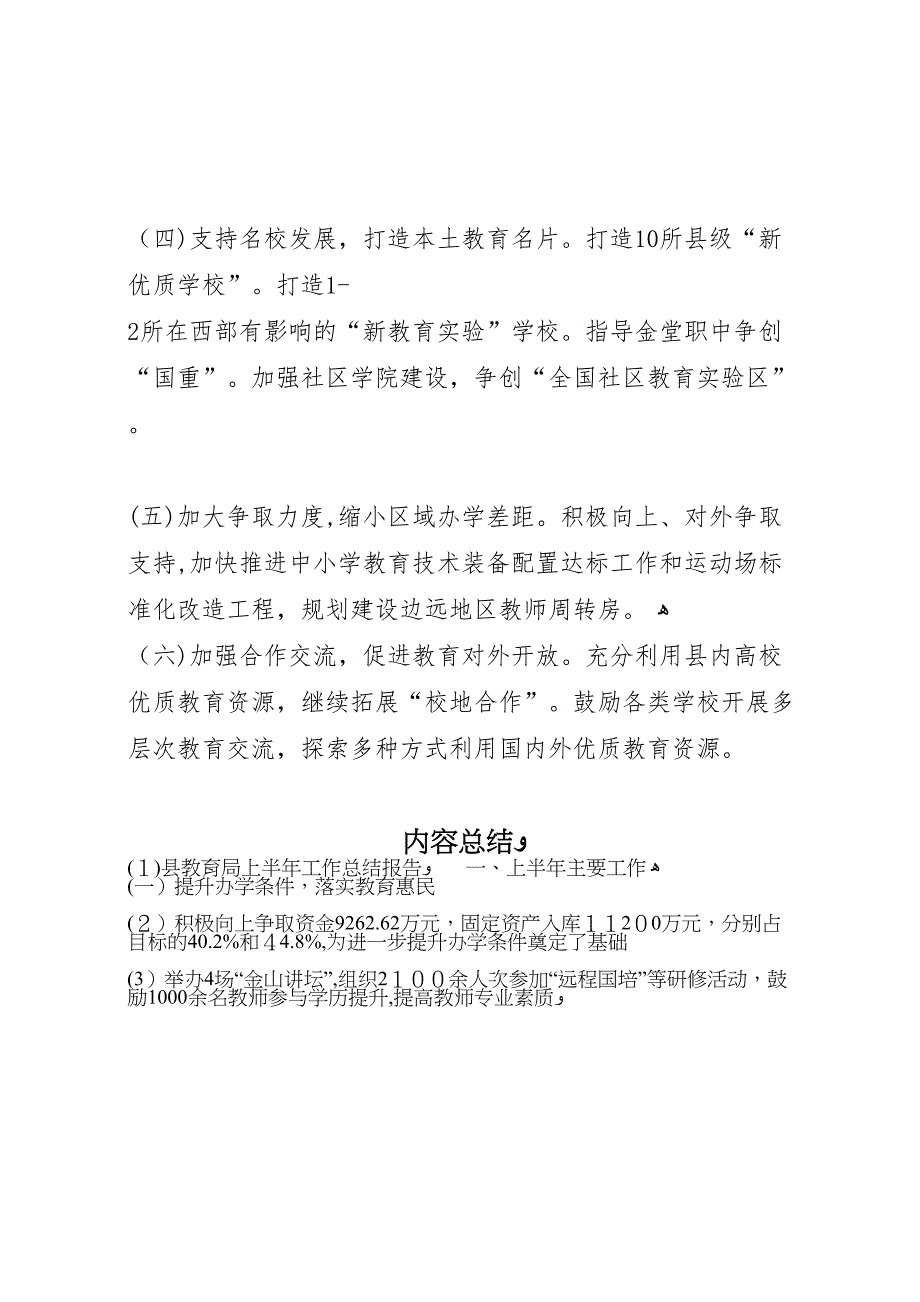 （四)支持名校发展，打造本土教育名片。打造10所县级“新
优质学校”。打造1-
2所在西部有影响的“新教育实验”学校。指导金堂职中争创
“国重”。加强社区学院建设，争创“全国社区教育实验区”
。
(五)加大争取力度,缩小区域办学差距。积极向上、对外争取
支持,加快推进中小学教育技术装备配置达标工作和运动场标
准化改造工程，规划建设边远地区教师周转房。 ﻫ
（六)加强合作交流，促进教育对外开放。充分利用县内高校
优质教育资源，继续拓展“校地合作”。鼓励各类学校开展多
层次教育交流，探索多种方式利用国内外优质教育资源。
内容总结ﻭ
(１)县教育局上半年工作总结报告ﻭ 一、上半年主要工作ﻫ
(一）提升办学条件，落实教育惠民
(２）积极向上争取资金9262.62万元，固定资产入库１１2００万元，分别占
目标的40.2%和４4.8%,为进一步提升办学条件奠定了基础
(3）举办4场“金山讲坛”,组织2１００余人次参加“远程国培”等研修活动，鼓
励1000余名教师参与学历提升,提高教师专业素质ﻭ